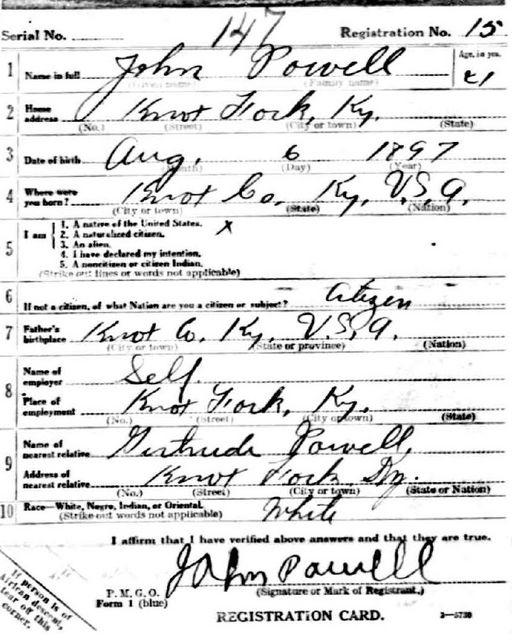 Serial No. 147 Registration No. 15
1 Name in full John Powell Age, in yrs. 21
(Given name) (Family name)
2 Home address Knot Fork, Ky.
(No.) (Street) (City or town) (State)
3 Date of birth Aug. 6 1897
(Month) (Day) (Year)
4 Where were you born? Knot Co. Ky. U.S.A.
(City or town) (State) (Nation)
5 I am
1. A native of the United States. x
2. A naturalized citizen.
3. An alien.
4. I have declared my intention.
5. A noncitizen or citizen Indian.
(Strike out lines or words not applicable)
6 If not a citizen, of what Nation are you a citizen or subject? Citizen
7 Father's birthplace Knot Co. Ky. U.S.A.
(City or town) (State or province) (Nation)
8 Name of employer Self
Place of employment Knot Fork, Ky.
(No.) (Street) (City or town) (State)
9 Name of nearest relative Gertrude Powell,
Address of nearest relative Knot Fork
(No.) (Street) (City or town) (State or Nation)
10 Race—White, Negro, Indian, or Oriental. White
(Strike out words not applicable)
I affirm that I have verified above answers and that they are true.
John Powell
P. M. G. O. (Signature or Mark of Registrant.)
Form 1 (blue)
REGISTRATION CARD. 3—5730
If person is of
African descent,
tear off this
corner.